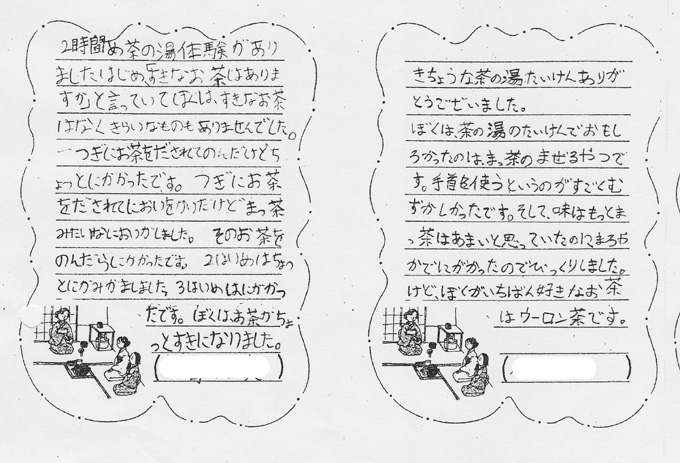 2時間め茶の湯体験があり
ました。はじめ、「すきなお茶はありま
すか」と言っていてぼくは、すきなお茶
はなく、きらいなものもありませんでした。
つぎにお茶をだされてのんだけどち
ょっとにがかったです。つぎにお茶
をだされてにおいをかいだけどまっ茶
みたいなにおいがしました。そのお茶を
のんだらにがかったです。2はいめはちょっ
とにがみがましました。3はいめはにがかっ
たです。ぼくはお茶がちょ
っとすきになりました。
きちょうな茶の湯たいけんありが
とうございました。
ぼくは、茶の湯のたいけんでおもし
ろかったのは、まっ茶のまぜるやつで
す。手首を使うというのがすごくむ
ずかしかったです。そして、味はもっとま
っ茶はあまいと思っていたのにまろや
かでにがかったのでびっくりしました。
けど、ぼくがいちばん好きなお茶
はウーロン茶です。